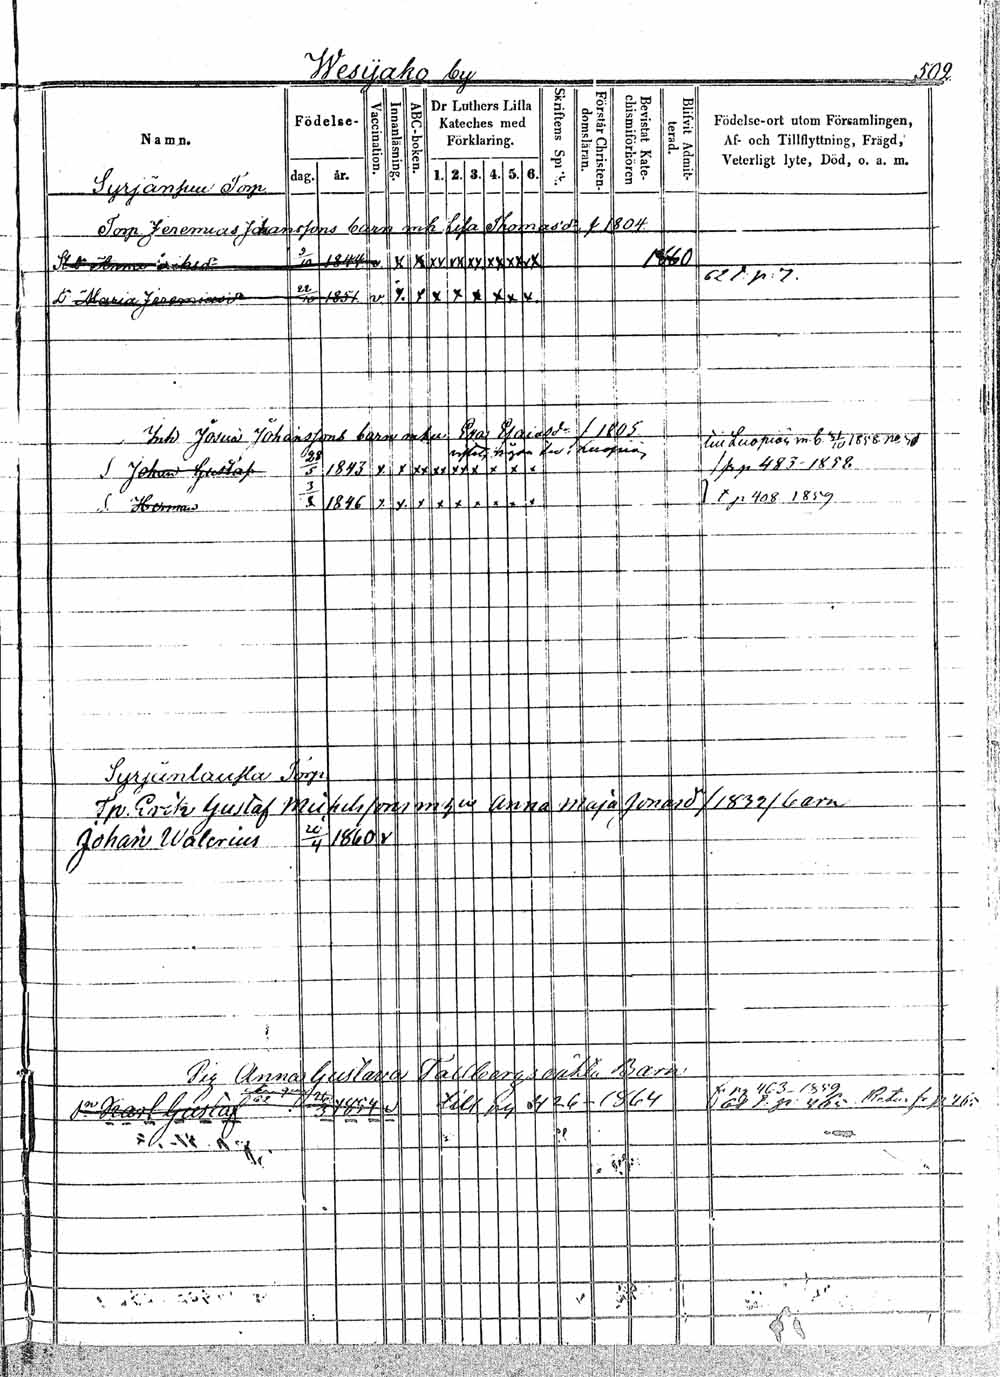 Wesijako by 509
Namn. Födelse- dag. år. Vaccination. Innanläsning. ABC-boken. Dr Luthers Lilla Kateches med Förklaring. 1. 2. 3. 4. 5. 6. Skriftens Spr. Förstår Christendomsläran. Bevistat Katechismiförhören Blifvit Admitterad. Födelse-ort utom Församlingen, Af- och Tillflyttning, Frägd, Veterligt lyte, Död, o. a. m.
Syrjänsuu Torp
Torp Jeremias Johanssons barn mh Lisa Thomasdr f 1804
Anna 1844 v x x xx xx xx xx xx xx 1860
62 t. p. 7.
D Maria Jeremiasdr 22/10 1851 v x x x x x x x x
Inh Josua Johanssons barn mhu Eva Esaiasdr f 1805
Luopiois
S Johan Gustaf 28/5 1843 x x xx xx xx x x x x till Luopiois m. b. 1858 no
p 483-1858
S Herman 1846 x x x x x x x x x t p 408 1859
Syrjänlausta Torp
Tp. Erik Gustaf Michelssons m hu Anna Maja Jonasdr /1832/ barn
Johan Walerius 20/4 1860 v
Pig Anna Gustava Tallbergs oäkta Barn
fr pg 463-1859
Karl Gustaf 1854 v 26-1864